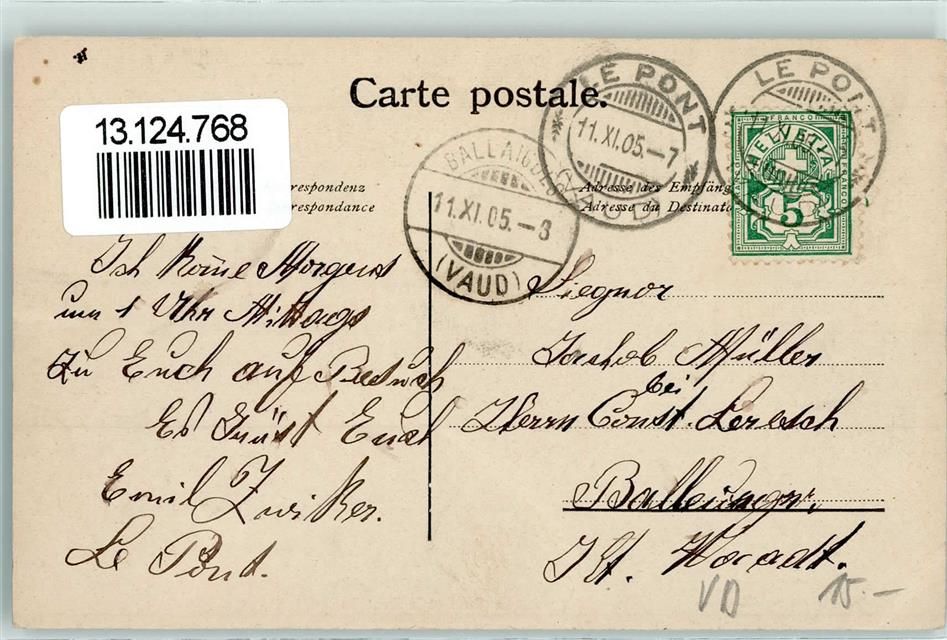 Carte postale.
13.124.768
LE PONT
11.XI.05.–7
(VAUD)
LE PONT
BALLAIGUES
11.XI.05.–8
(VAUD)
FRANCO
HELVETIA
5
respondenz
respondance
Adresse des Empfäng
Adresse du Destinata
Ich kome Morgens
um 1 Uhr Mittags
Zu Euch auf Besuch
Es Grüst Euch
Emil Zwiker.
Le Pont.
Siegnor
Jakob Müller
bei
Herrn Const. Leresch
Kt. Waadt.
VD
15.–